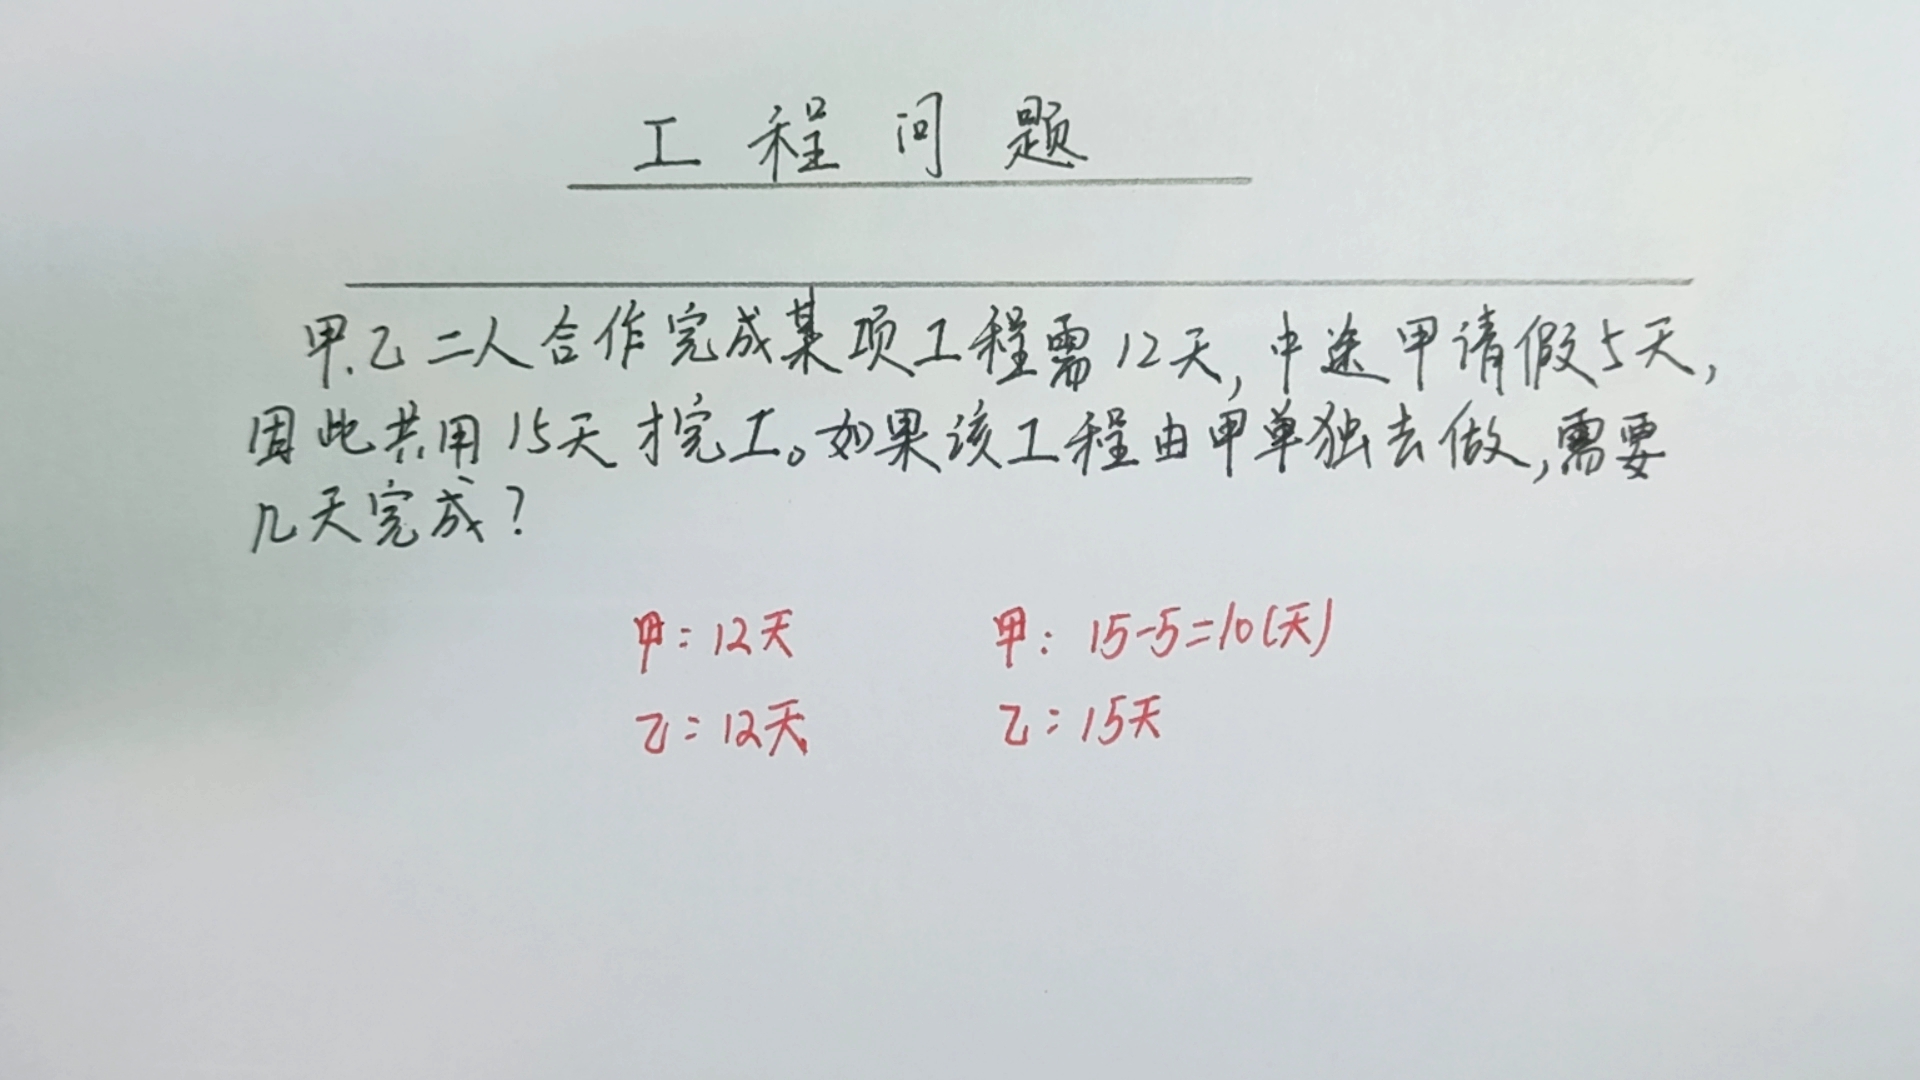 工程问题
甲、乙二人合作完成某项工程需12天,中途甲请假5天,
因此共用15天才完工。如果该工程由甲单独去做,需要
几天完成?
甲:12天 甲:15-5=10(天)
乙:12天 乙:15天